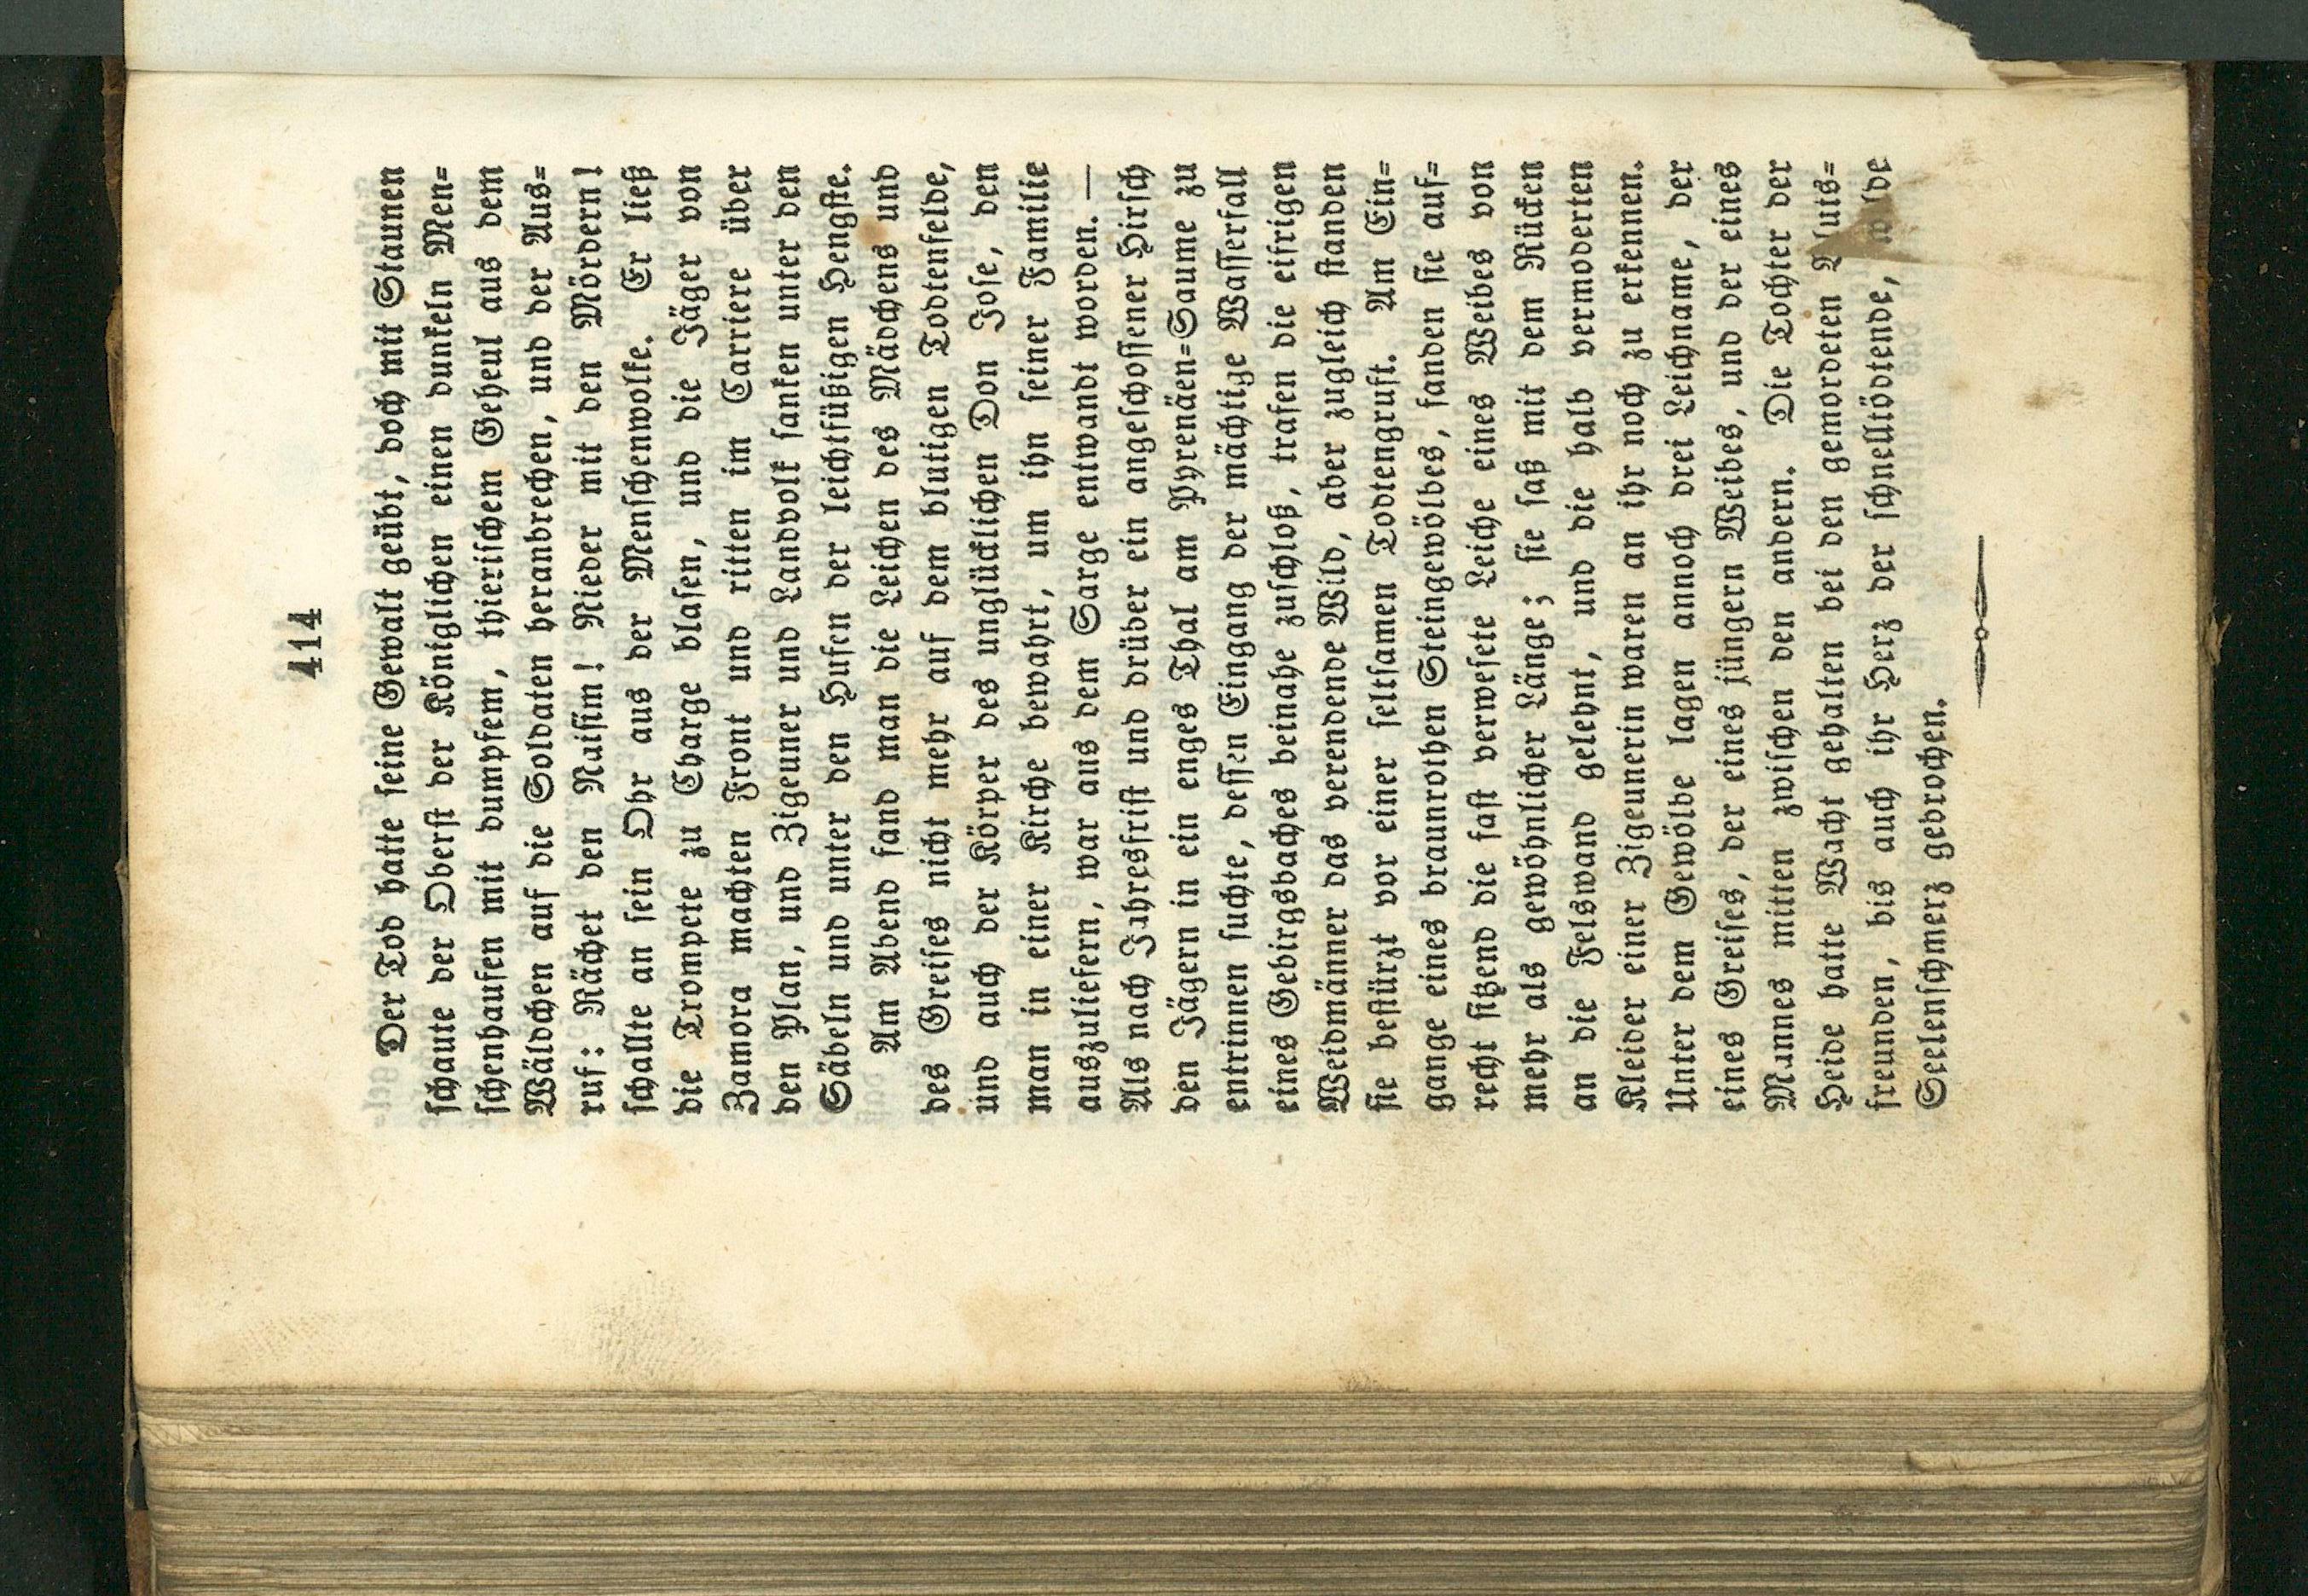 414
Der Tod hatte ſeine Gewalt geübt, doch mit Staunen
ſchaute der Oberſt der Königlichen einen dunkeln Men=
ſchenhaufen mit dumpfem, thieriſchem Geheul aus dem
Wäldchen auf die Soldaten heranbrechen, und der Aus=
ruf: Rächet den Naiſim! Nieder mit den Mördern!
ſchallte an ſein Ohr aus der Menſchenwolke. Er ließ
die Trompete zu Charge blaſen, und die Jäger von
Zamora machten Front und ritten im Carriere über
den Plan, und Zigeuner und Landvolk ſanken unter den
Säbeln und unter den Hufen der leichtfüßigen Hengſte.
Am Abend fand man die Leichen des Mädchens und
des Greiſes nicht mehr auf dem blutigen Todtenfelde,
und auch der Körper des unglücklichen Don Joſe, den
man in einer Kirche bewahrt, um ihn ſeiner Familie
auszuliefern, war aus dem Sarge entwandt worden. —
Als nach Jahresfriſt und drüber ein angeſchoſſener Hirſch
den Jägern in ein enges Thal am Pyrenäen=Saume zu
entrinnen ſuchte, deſſen Eingang der mächtige Waſſerfall
eines Gebirgsbaches beinahe zuſchloß, trafen die eifrigen
Weidmänner das verendende Wild, aber zugleich ſtanden
ſie beſtürzt vor einer ſeltſamen Todtengruft. Am Ein=
gange eines braunrothen Steingewölbes, fanden ſie auf=
recht ſitzend die faſt verweſete Leiche eines Weibes von
mehr als gewöhnlicher Länge; ſie ſaß mit dem Rücken
an die Felswand gelehnt, und die halb vermoderten
Kleider einer Zigeunerin waren an ihr noch zu erkennen.
Unter dem Gewölbe lagen annoch drei Leichname, der
eines Greiſes, der eines jüngern Weibes, und der eines
Mannes mitten zwiſchen den andern. Die Tochter der
Heide hatte Wacht gehalten bei den gemordeten
freunden, bis auch ihr Herz der ſchnelltödtende,
Seelenſchmerz gebrochen.